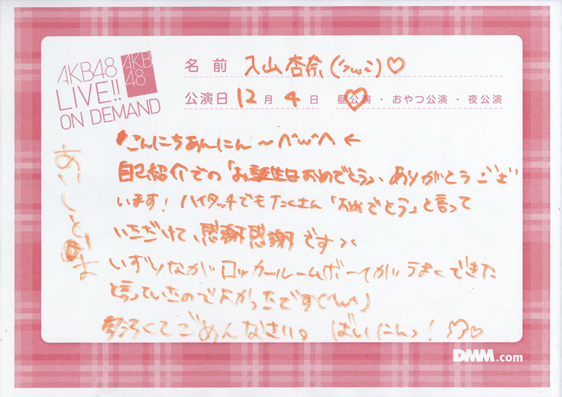 AKB48
LIVE!!
ON DEMAND
AKB
48
名前 入山杏奈(・ω・)♡
公演日 12月 4日 昼公演・おやつ公演・夜公演
こんにちあんにん〜^ω^
自己紹介での「お誕生日おめでとう」、ありがとうござ
います！ハイタッチでもたくさん「おめでとう」と言って
いただけて、感謝感謝です><
いずりながロッカールームボーイが うまくできた
と言っていたのでよかったです(^ω^)
くてごめんなさい。ばいにんっ！♡
DMM.com